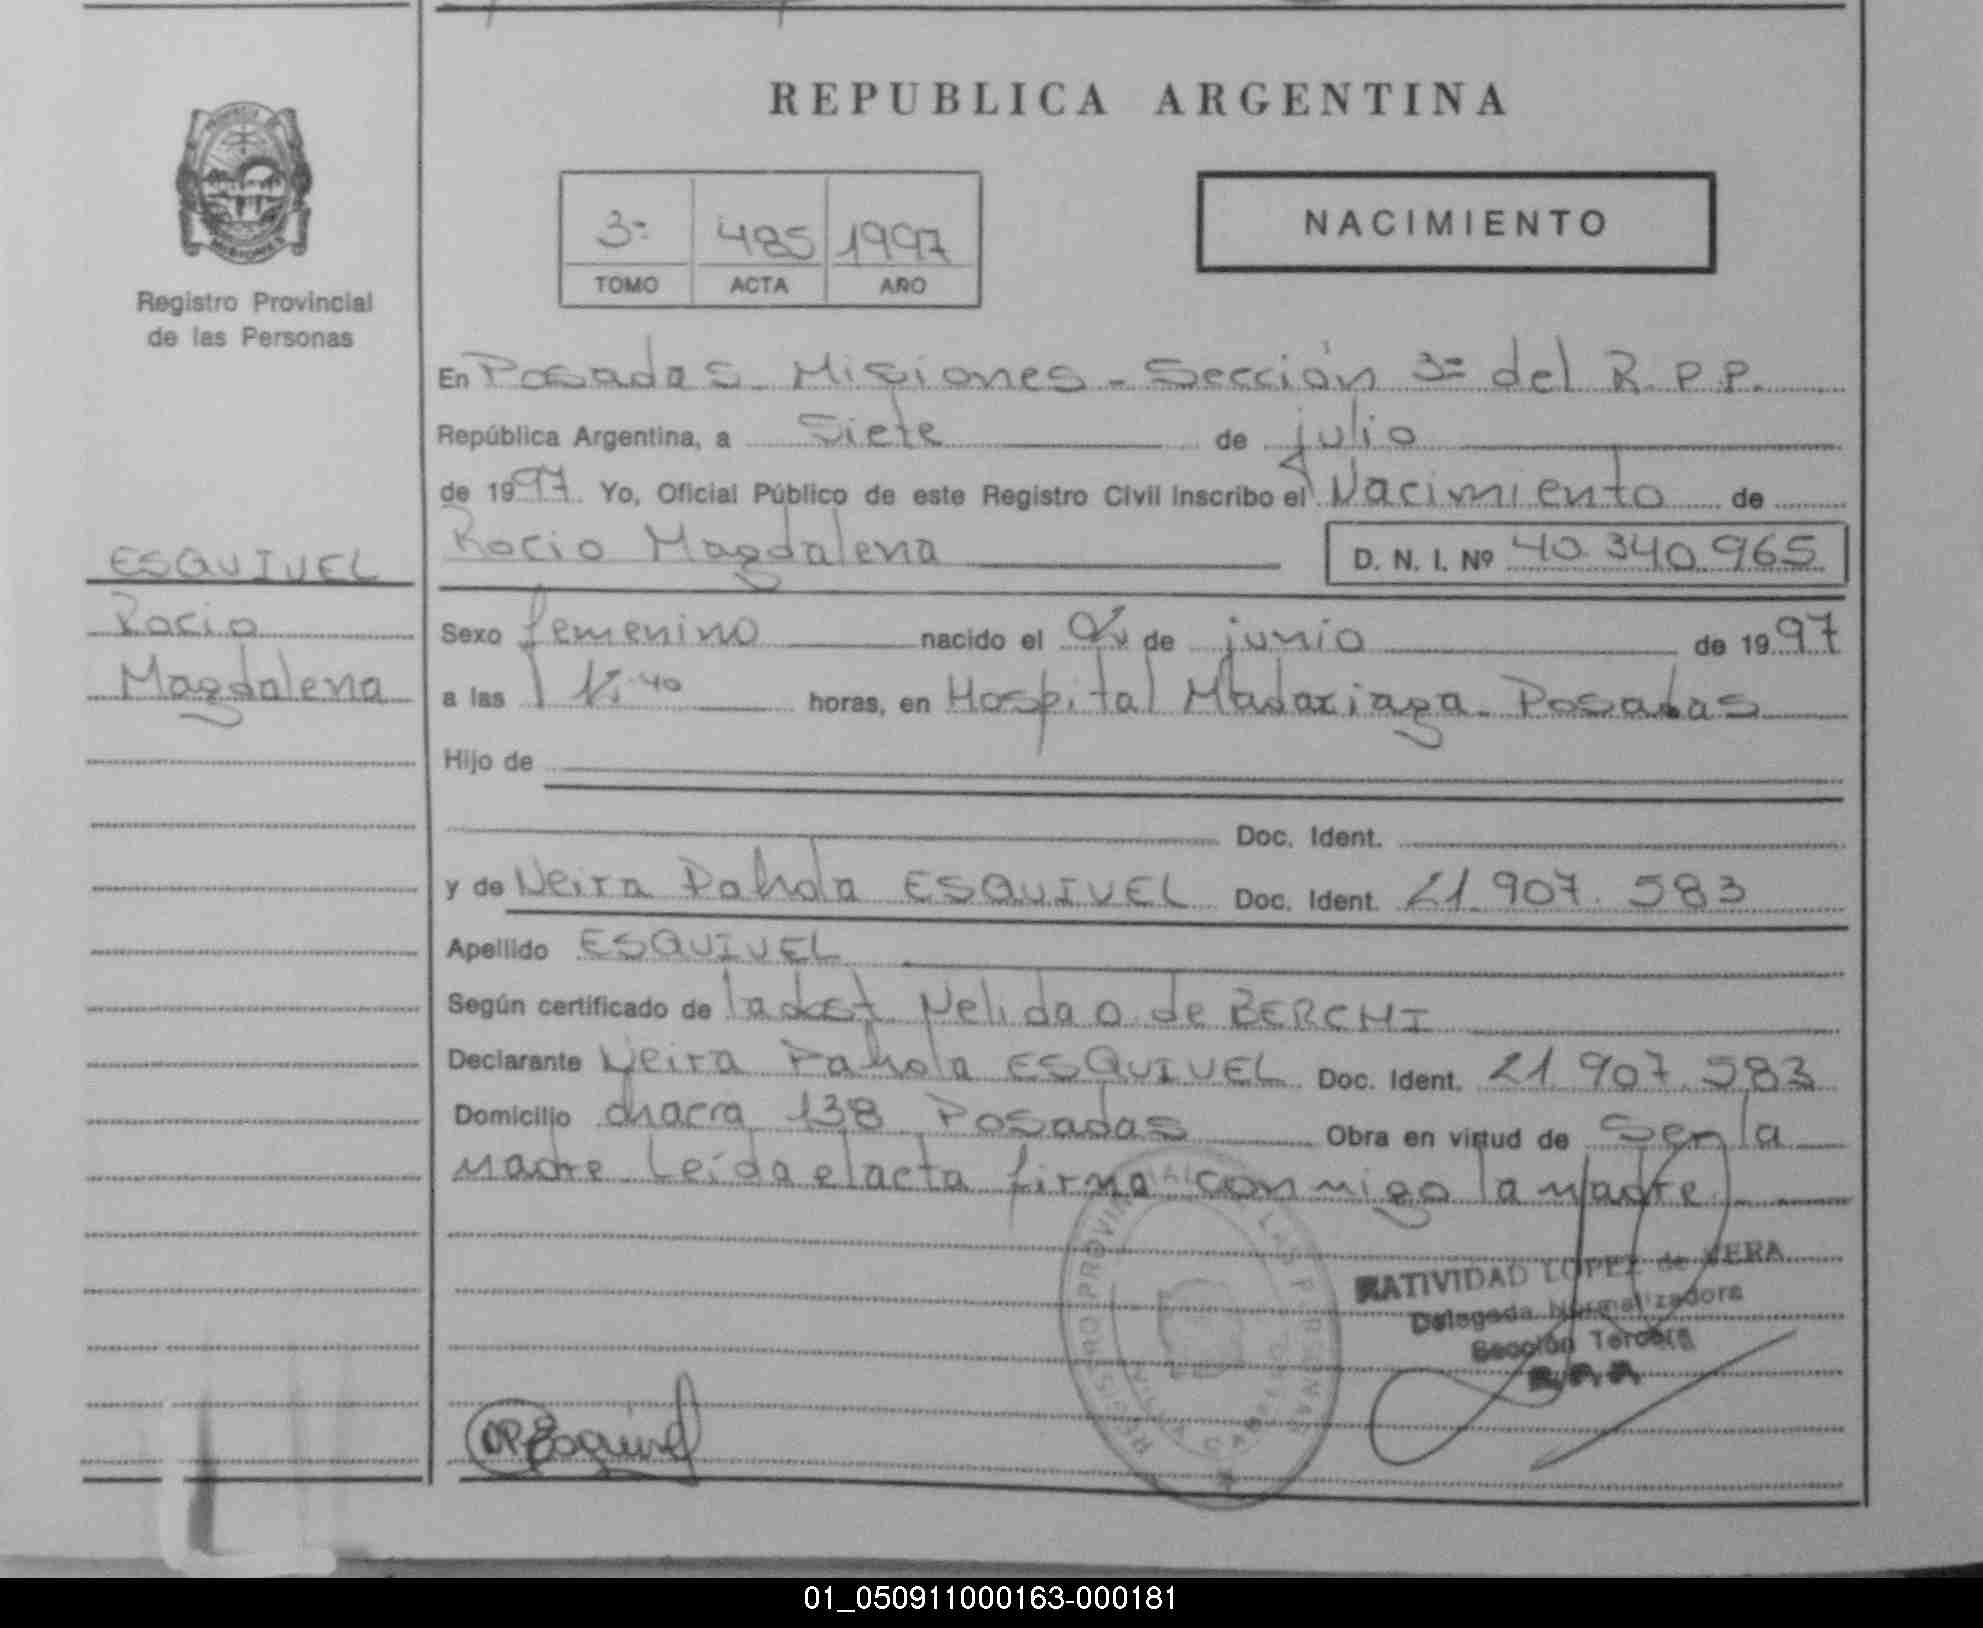 REPUBLICA ARGENTINA
MISIONES
Registro Provincial
de las Personas
3ª 485 1997
TOMO ACTA AÑO
NACIMIENTO
En Posadas Misiones - Sección 3ª del R.P.P.
República Argentina, a siete de julio
de 1997 Yo, Oficial Público de este Registro Civil Inscribo el Nacimiento de
Rocio Magdalena D. N. I. Nº 40.340.965
ESQUIVEL
Rocio
Magdalena
Sexo femenino nacido el de junio de 1997
a las horas, en Hospital Madariaga - Posadas
Hijo de
Doc. Ident.
y de Neira Pahola ESQUIVEL Doc. Ident. 21.907.583
Apellido ESQUIVEL
Según certificado de la Nelida de BERCHI
Declarante Neira Pahola ESQUIVEL Doc. Ident. 21.907.583
Domicilio chacra 138 Posadas Obra en virtud de Ser la
madre Leída el acta firma conmigo la madre
REGISTRO PROVINCIAL DE LAS PERSONAS
NATIVIDAD LOPEZ de VERA
Delegada Normalizadora
Sección Tercera
NPEsquivel
01_050911000163-000181